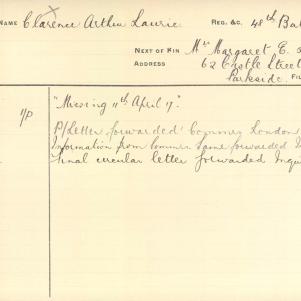 NAME Clarence Arthur Laurie REG. &C. 48th Bat
NEXT OF KIN Mrs Margaret E.
ADDRESS 62 Castle Street
Parkside. FI
"Missing 11th April 17."
P/Letter forwarded Commrs London
Information from Commrs. same forwarded
Final circular letter forwarded Inqui